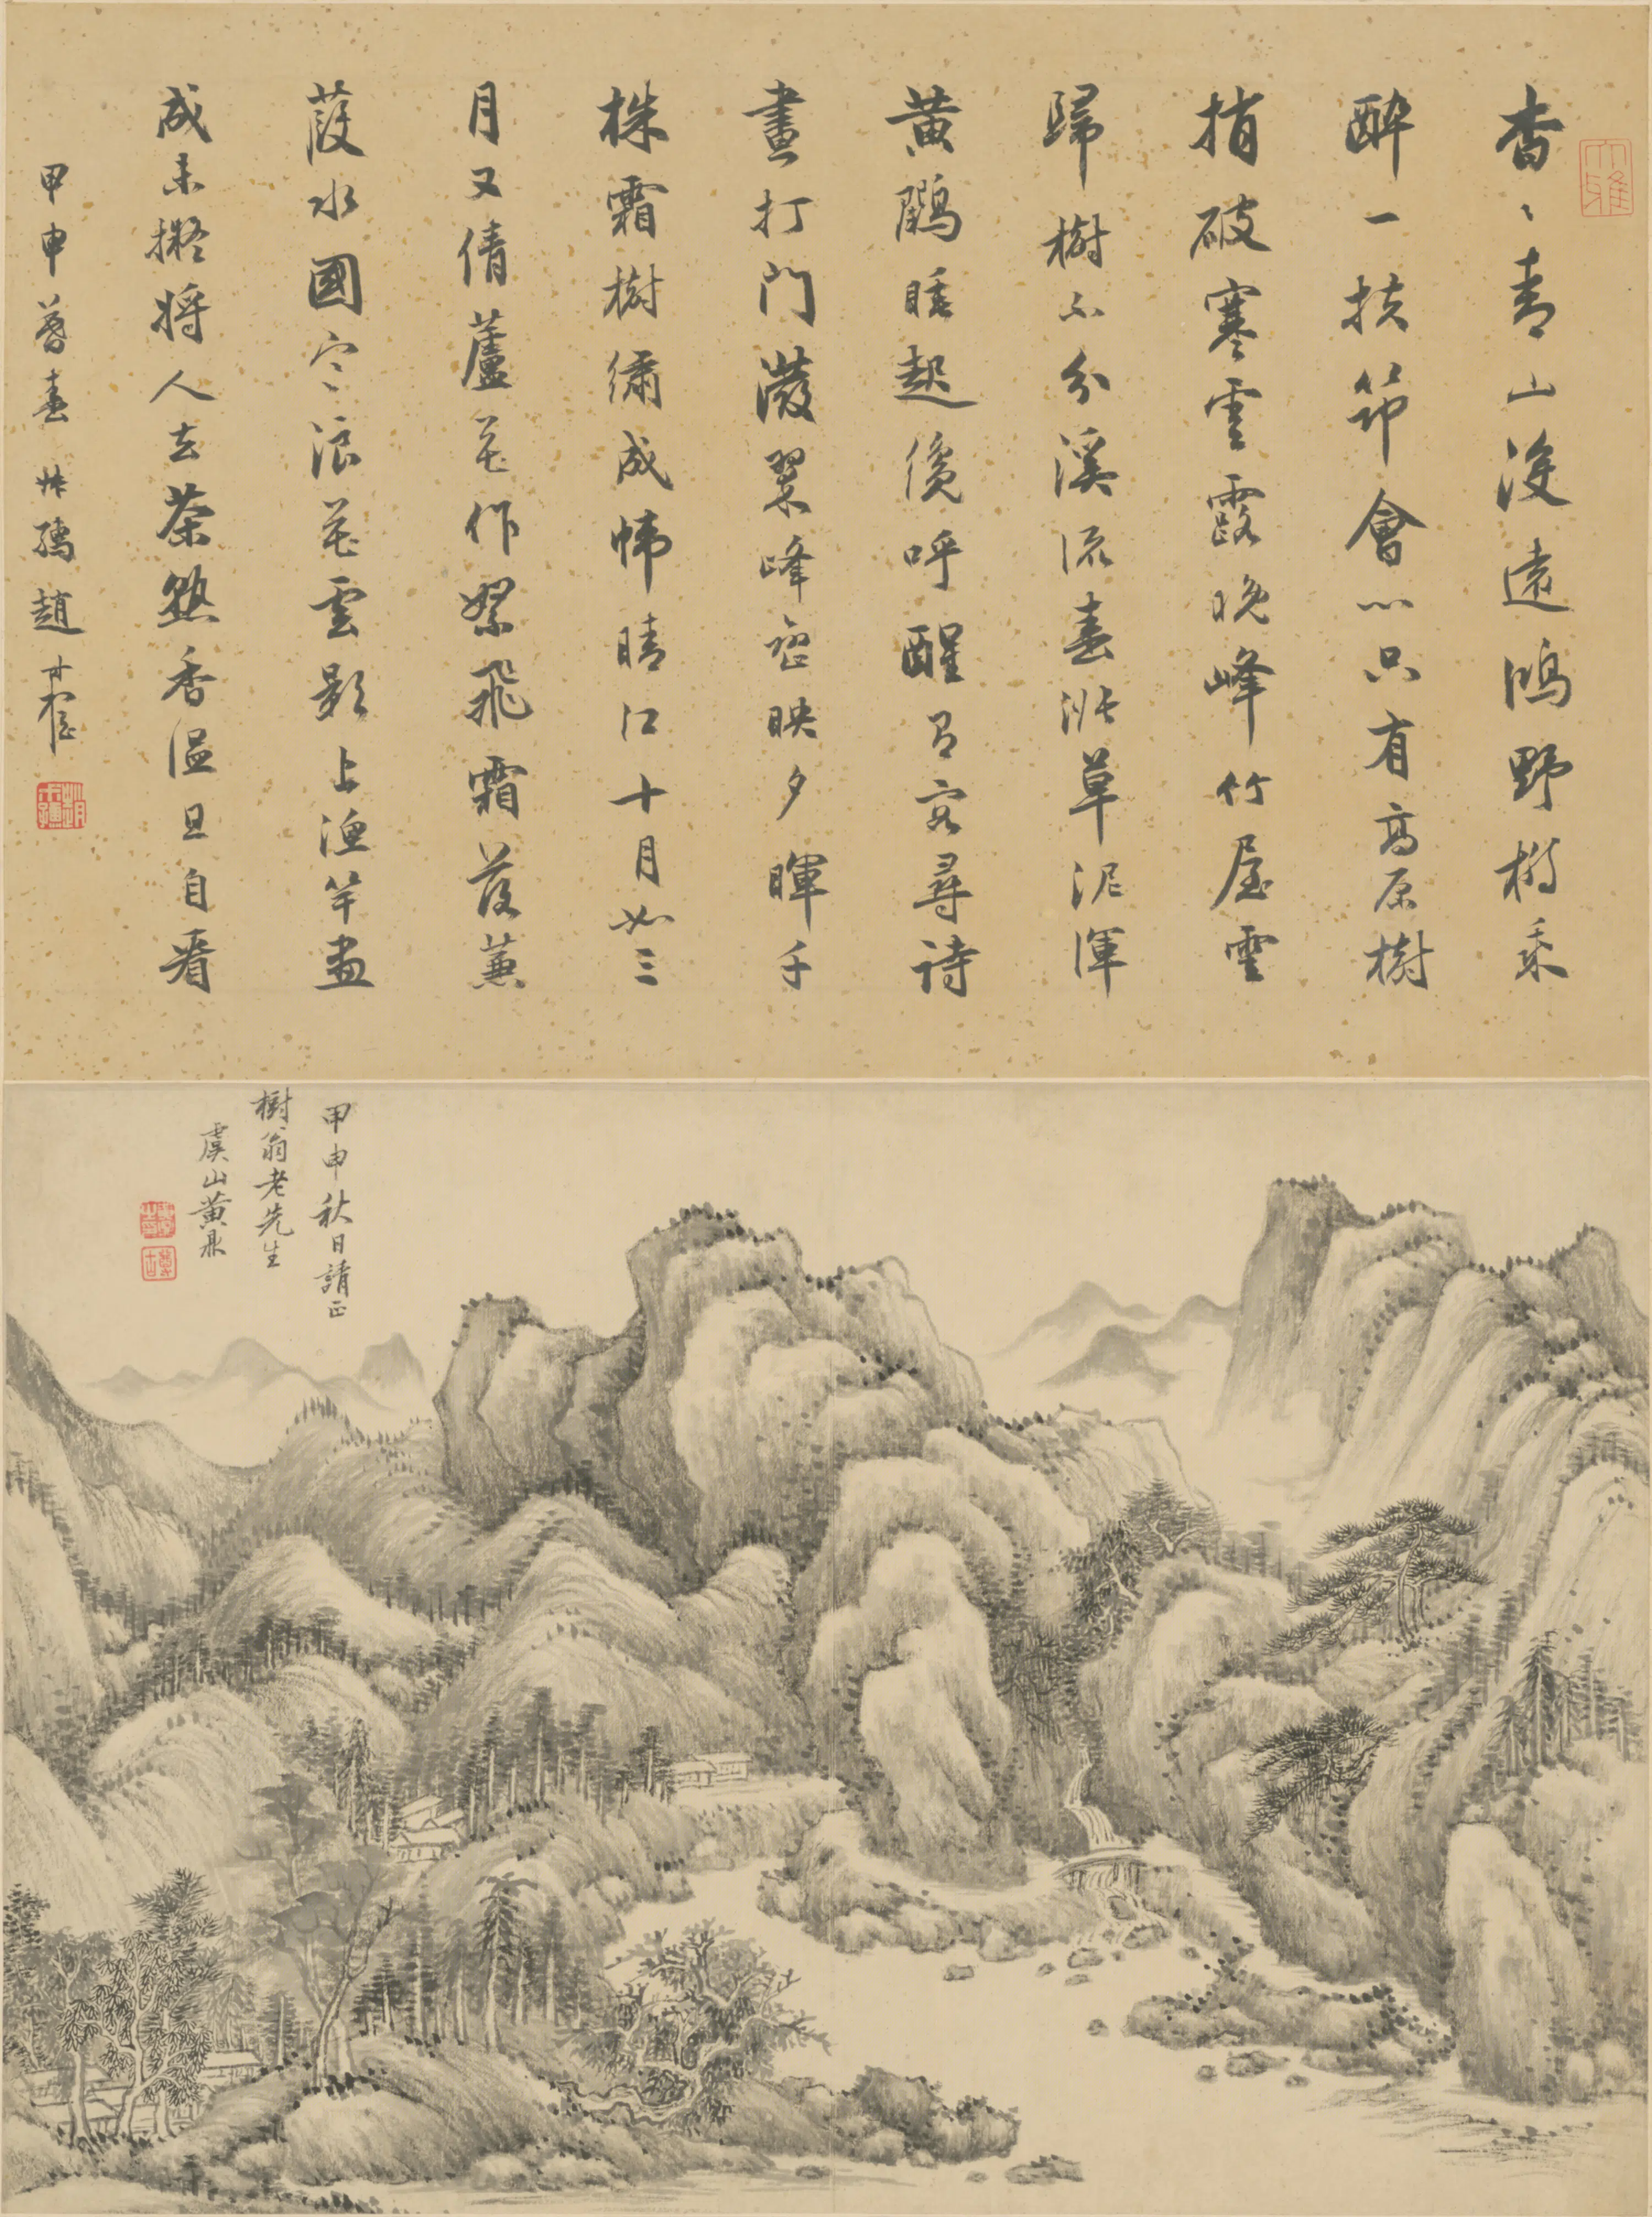 大雅
杳〻青山沒遠鴻野橋乘
醉一扶筇會心只有高原樹
捎破寒雲露晚峰竹屋雲
歸樹不分溪流春漲草泥渾
黃鸝睡起呼醒有客尋詩
晝打門潑翠峰巒映夕暉千
株霜樹繡成幃晴江十月如三
月又倩蘆花作絮飛霜落蒹
葭水國寒浪花雲影上漁竿畫
成未擬將人去茶熟香溫且自看
甲申暮春孺趙
甲申秋日請正
樹翁老先生
虞山黃鼎